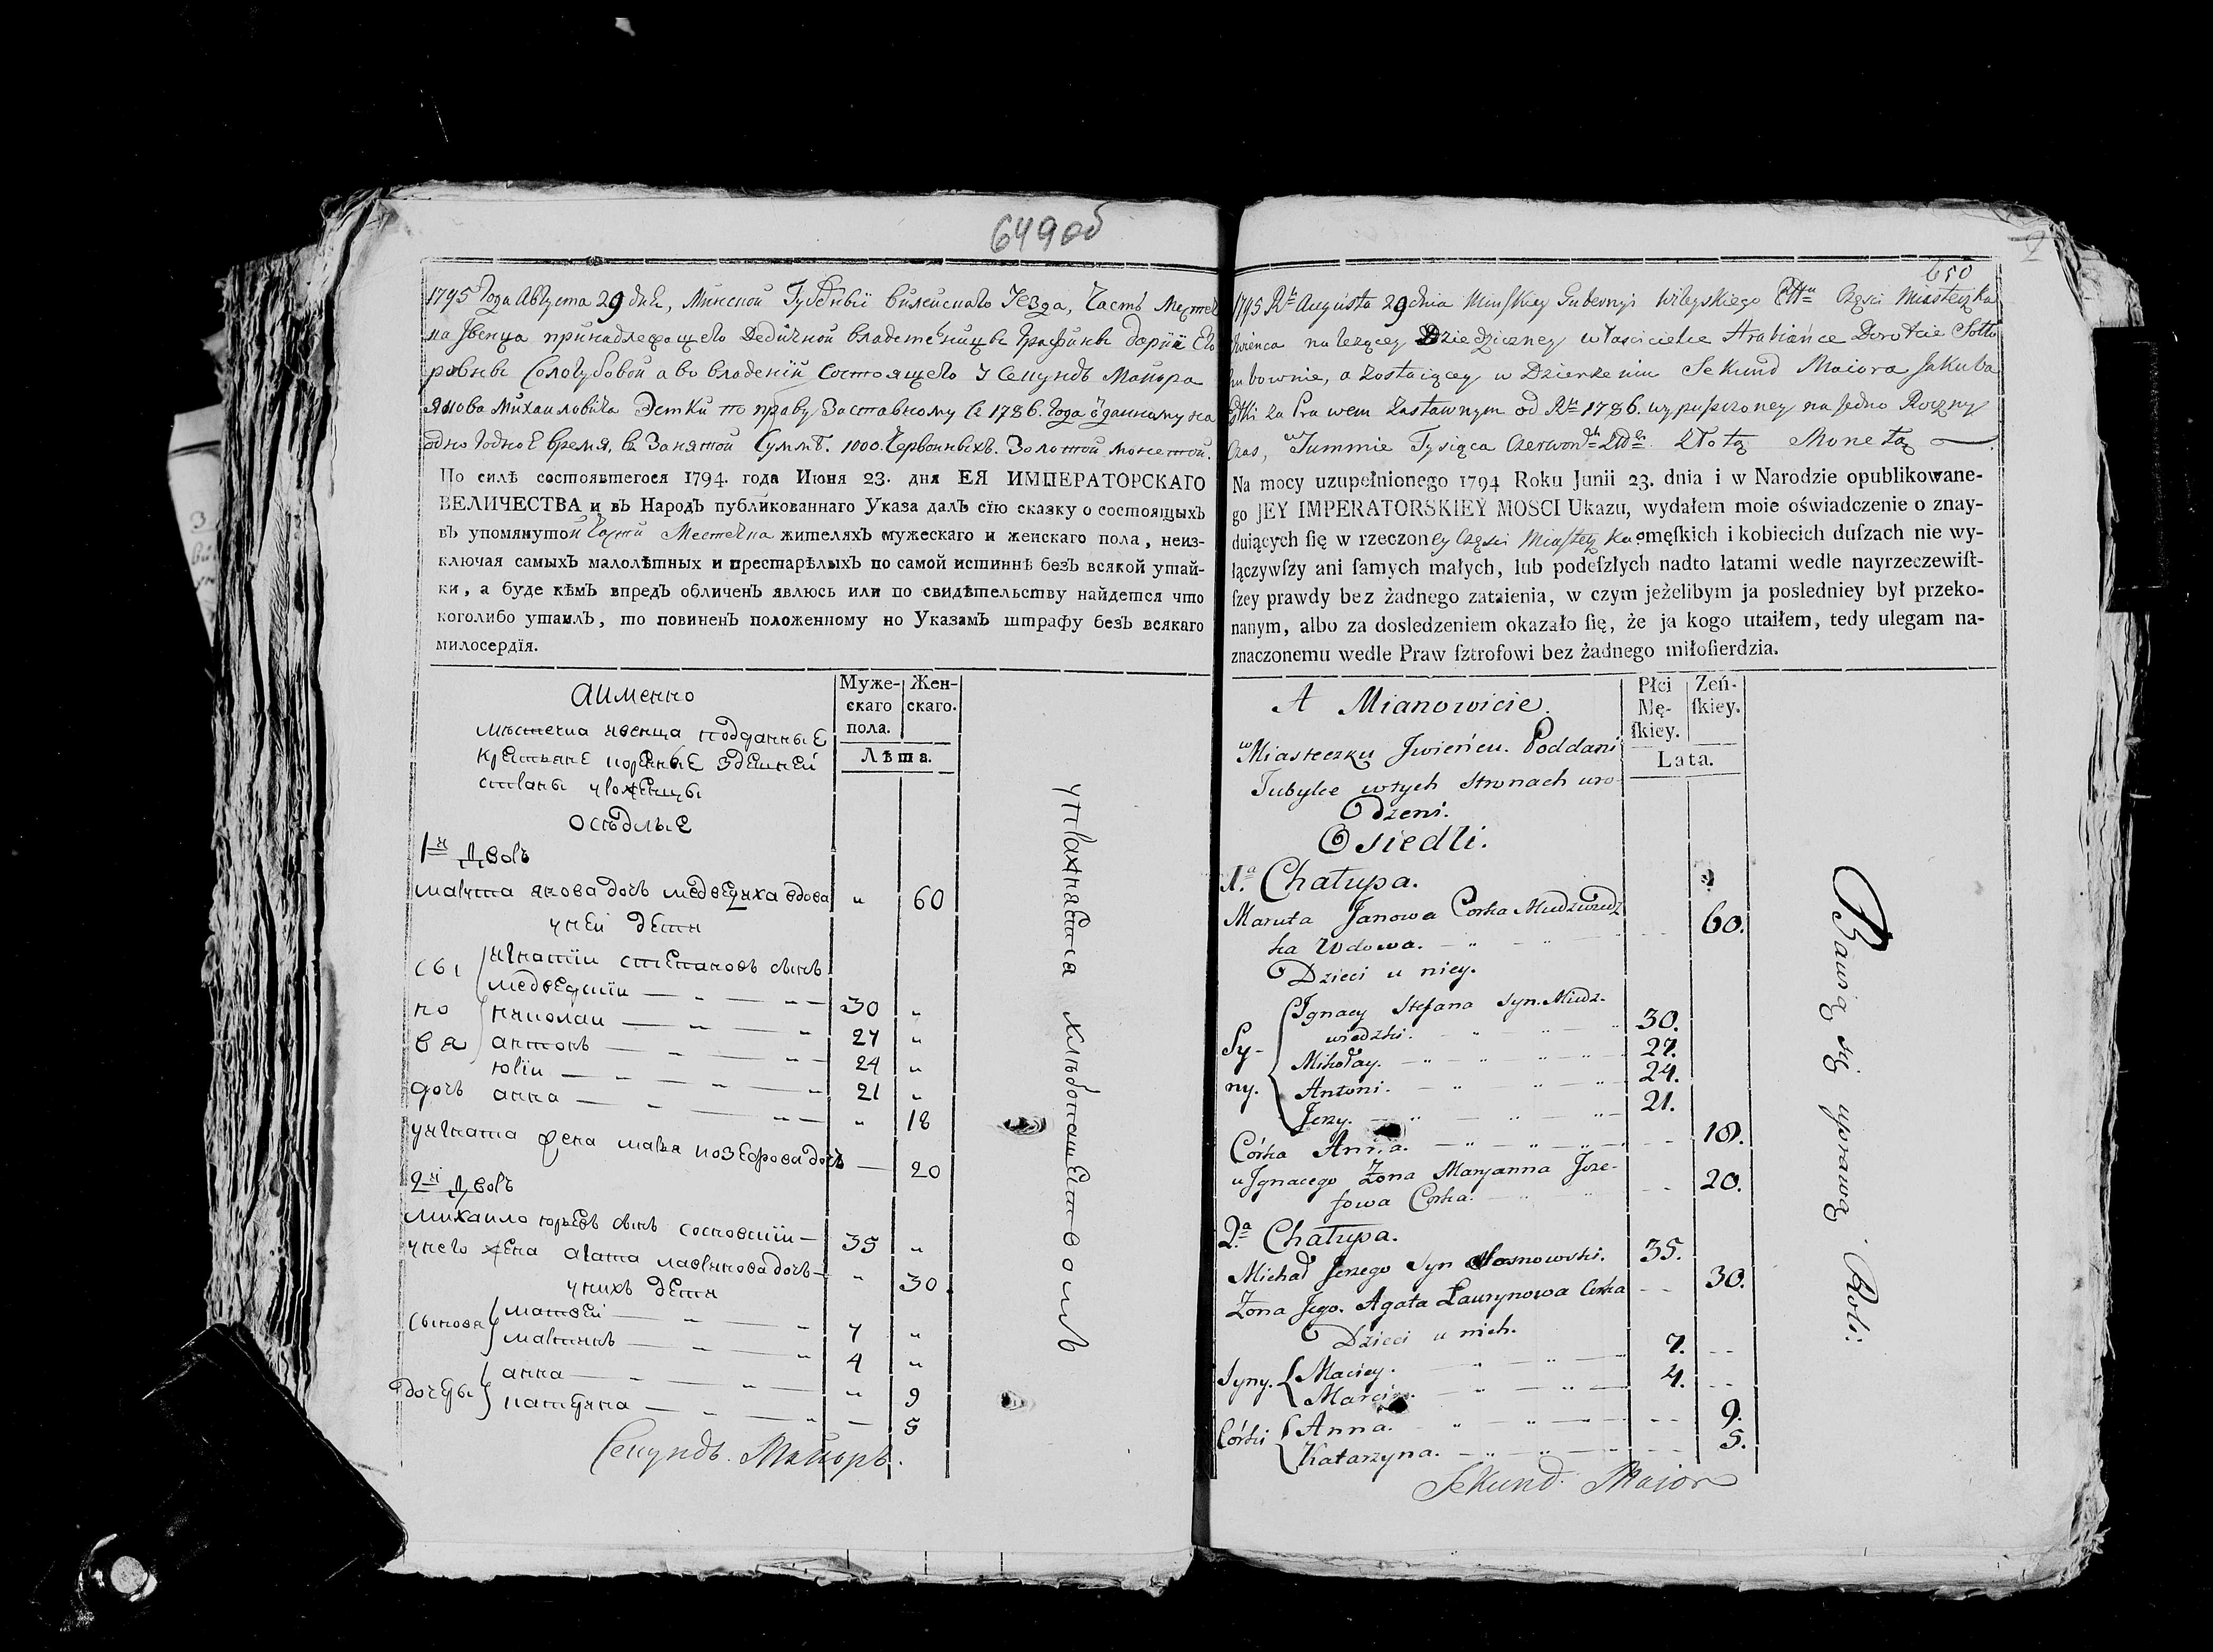 649об
1795 Года Августа 29 дня, Минской Губерніи Вилейскаго Уезда, Часть Местеч
ка Ивенца принадлежащего Дедичной владетельнице Графинѣ Дарііе Его
ровнѣ Сологубовой а во владеніи Состоящего у Секундъ Маиора
Якова Михаиловича Эстки по праву Заставному съ 1786. Года отданному на
одно Годное время, въ Занятой Суммѣ. 1000. Червонныхъ. Золотой монетой.
По силѣ состоявшегося 1794. года Июня 23. дня ЕЯ ИМПЕРАТОРСКАГО
ВЕЛИЧЕСТВА и въ Народъ публикованнаго Указа далъ сїю сказку о состоящыхъ
въ упомянутой части Местечка жителяхъ мужескаго и женскаго пола, неиз-
ключая самыхъ малолѣтныхъ и престарѣлыхъ по самой истиннѣ безъ всякой утай-
ки, а буде кѣмъ впредъ обличенъ явлюсь или по свидѣтельству найдется что
коголибо утаилъ, то повиненъ положенному по Указамъ штрафу безъ всякаго
милосердїя.
аименно
Муже-
скаго
пола.
Жен-
скаго.
Лѣта.
мѣстечка ивенца подданные
крестьяне коренные здешней
страны уроженцы
оседлые
1й дворъ
марута янова дочь медведзка вдова " 60
у ней дети
сы
но
вя
игнатіи степановъ сынъ
медведскіи 30 "
николаи 27 "
антонъ 24 "
юріи 21 "
дочь анна " 18
у игната жена марья иозефова дочь 20
2й дворъ
михаило юрьевъ сынъ сосновскіи 35 "
у него жена агата лавринова дочь " 30
у нихъ дети
сыновя
матвеи 7 "
мартинъ 4 "
дочеры
анна " 9
катерина 5
упражняется хлебопашествомъ
Секундъ. Маиоръ.
2
650
1795 Rku Augusta 29 dnia Minskiey Gubernyi Wileyskiego Pttu Częsci Miasteczka
Iwienca należącey Dziedziczney własicielce Hrabiance Dorotcie Sołło
hubownie, a zostaiącey w Dzierżeniu Sekund Maiora Jakuba
Estki za Prawem Zastawnym od Rku 1786. wypuszczoney na jedno Roczny
Czas, w Summie Tysiąca Czerwon Złotą Monetą
Na mocy uzupełnionego 1794 Roku Junii 23. dnia i w Narodzie opublikowane-
go JEY IMPERATORSKIEY MOSCI Ukazu, wydałem moie oświadczenie o znay-
duiących ſię w rzeczoney Częsci Miasteczka o męſkich i kobiecich duſzach nie wy-
łączywſzy ani ſamych małych, lub podeſzłych nadto latami wedle nayrzeczewiſt-
ſzey prawdy bez żadnego zataienia, w czym jeżelibym ja posledniey był przeko-
nanym, albo za dosledzeniem okazało ſię, że ja kogo utaiłem, tedy ulegam na-
znaczonemu wedle Praw ſztrofowi bez żadnego miłoſierdzia.
A Mianowicie.
Płci
Mę-
ſkiey.
Zeń-
ſkiey.
Lata.
w Miasteczku Jwieńcu. Poddani
Tubylce w tych stronach uro-
dzeni.
Osiedli.
1.a Chałupa.
Maruta Janowa Corka Miedzwiedz
ka Wdowa. 60.
Dzieci u niey.
Sy-
ny.
Jgnacy Stefana syn. Miedz-
wiedzki. 30.
Mikołay. 27.
Antoni. 24.
Jerzy. 21.
Córka Anna. 18.
u Jgnacego Zona Maryanna Joze-
fowa Corka. 20.
2.a Chałupa.
Michał Jerzego Syn Sosnowski. 35.
Zona Jego. Agata Laurynowa Corka 30.
Dzieci u nich.
Syny.
Maciey. 7.
Marcin. 4.
Córki
Anna. 9.
Katarzyna. 5.
Bawią się uprawą Roli:
Sekund. Maior